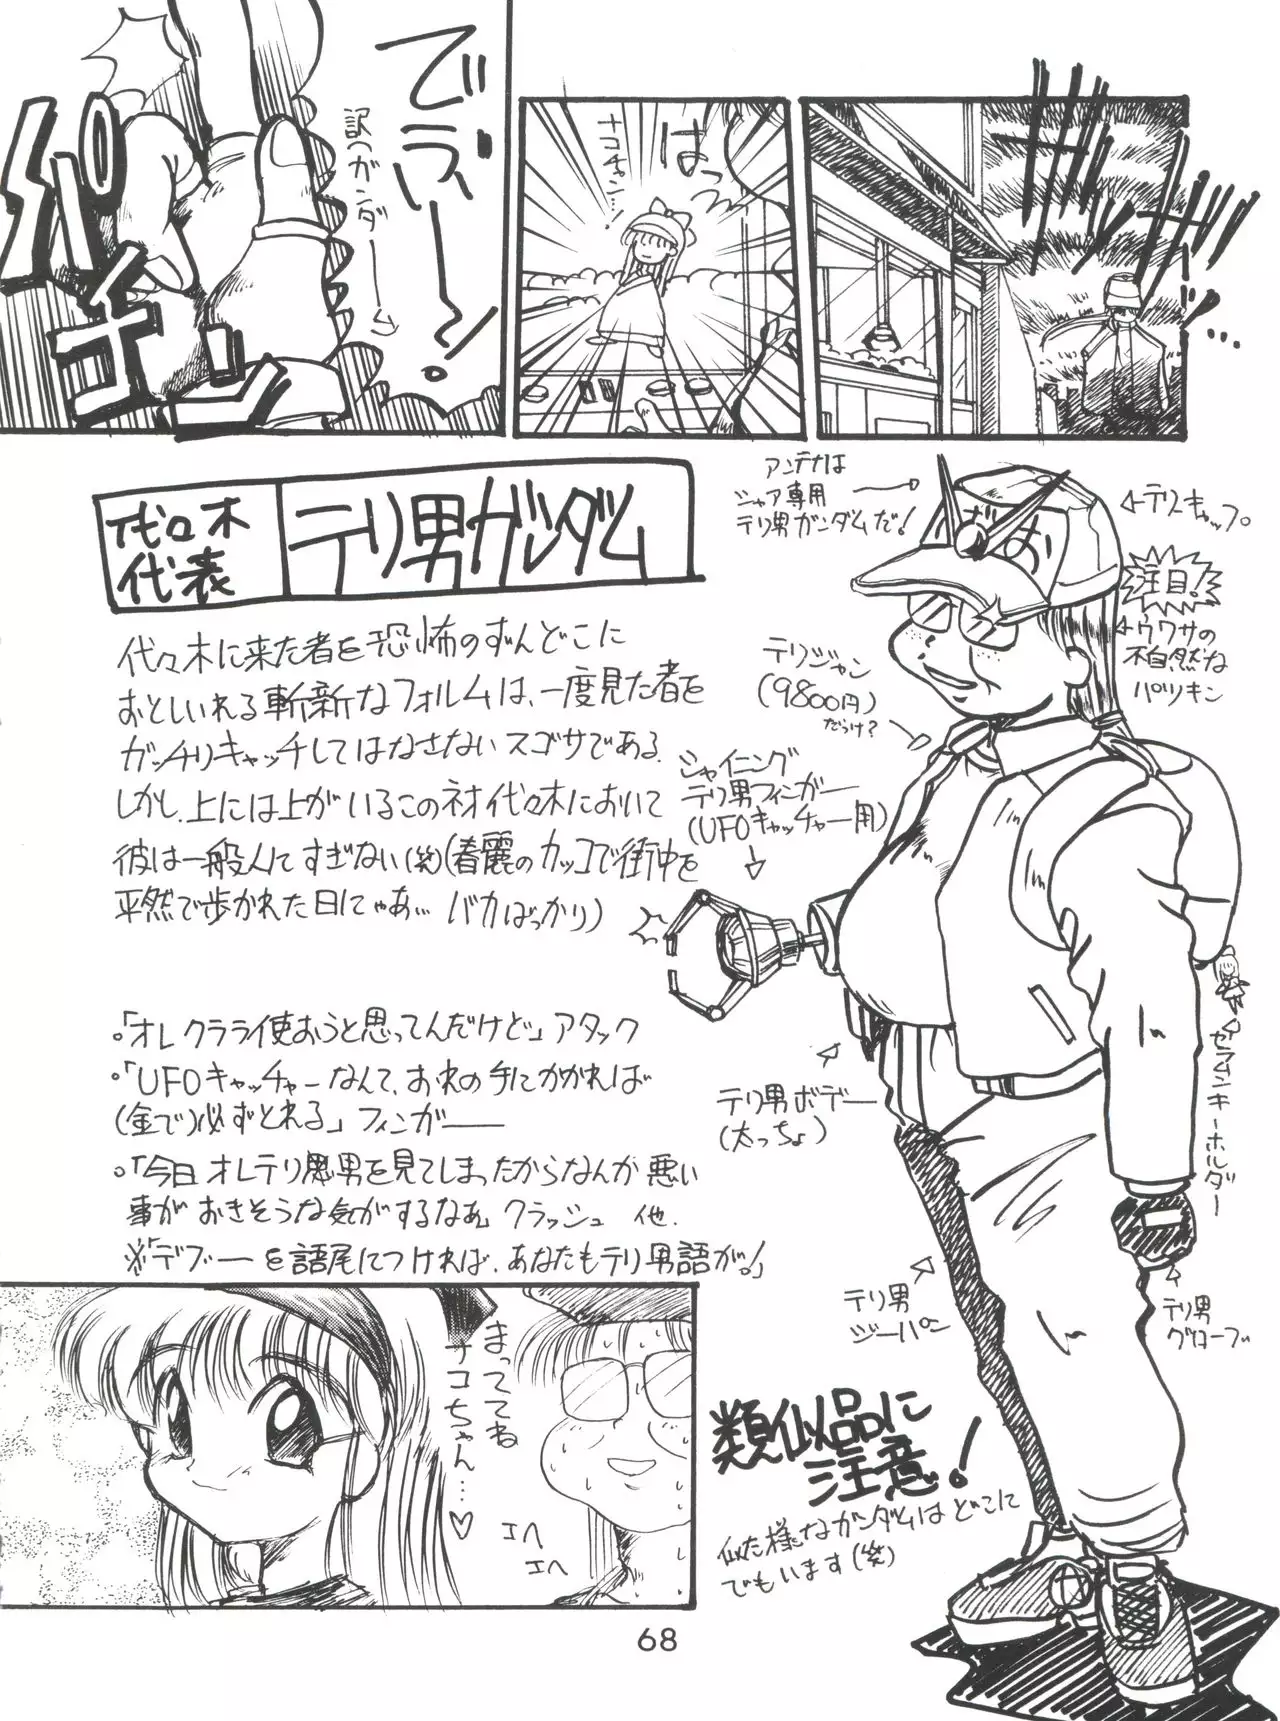 ザッザッザッザッ…
はっ
ナコチャン…!
でぶー!
訳〉ガンダーム
パチン
代々木
代表
テリ男ガンダム
代々木に来た者を恐怖のずんどこに
おとしいれる斬新なフォルムは、一度見た者を
ガッチリキャッチしてはなさないスゴサである.
しかし、上には上がいるこのネオ代々木において
彼は一般人てすぎない(笑)(春麗のカッコで街中を
平然で歩かれた日にゃあ… バカばっかり)
。「オレクラライ使おうと思ってんだけど」アタック
。「UFOキャッチャーなんて、おれの手にかかれば
(金で)必ずとれる」フィンガー
。「今日オレテリ男を見てしまったからなんか悪い
事がおきそうな気がするなぁ」クラッシュ 他.
※「デブーを語尾につければ、あなたもテリ男語が。」
アンテナは
シャア専用
テリ男ガンダムだ!
テリキャップ
注目!
ウワサの
不自然な
パツキン
テリジャン
(9800円)
だっけ?
シャイニング
テリ男フィンガー
(UFOキャッチャー用)
セラムンキーホルダー
テリ男ボデー
(太っちょ)
テリ男
ジーパン
テリ男
グローブ
類似品に
注意!
似た様なガンダムはどこに
でもいます(笑)
まっててね
ナコちゃん…♡
エヘ
エヘ
68